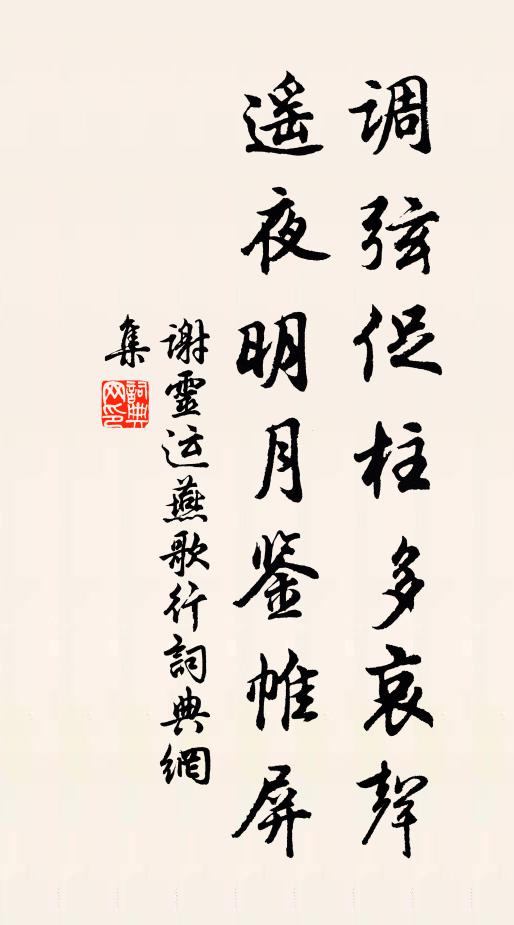 调弦促柱多哀聲
遥夜明月鉴帷屏
谢靈运燕歌行詞典網
集
詞典网印